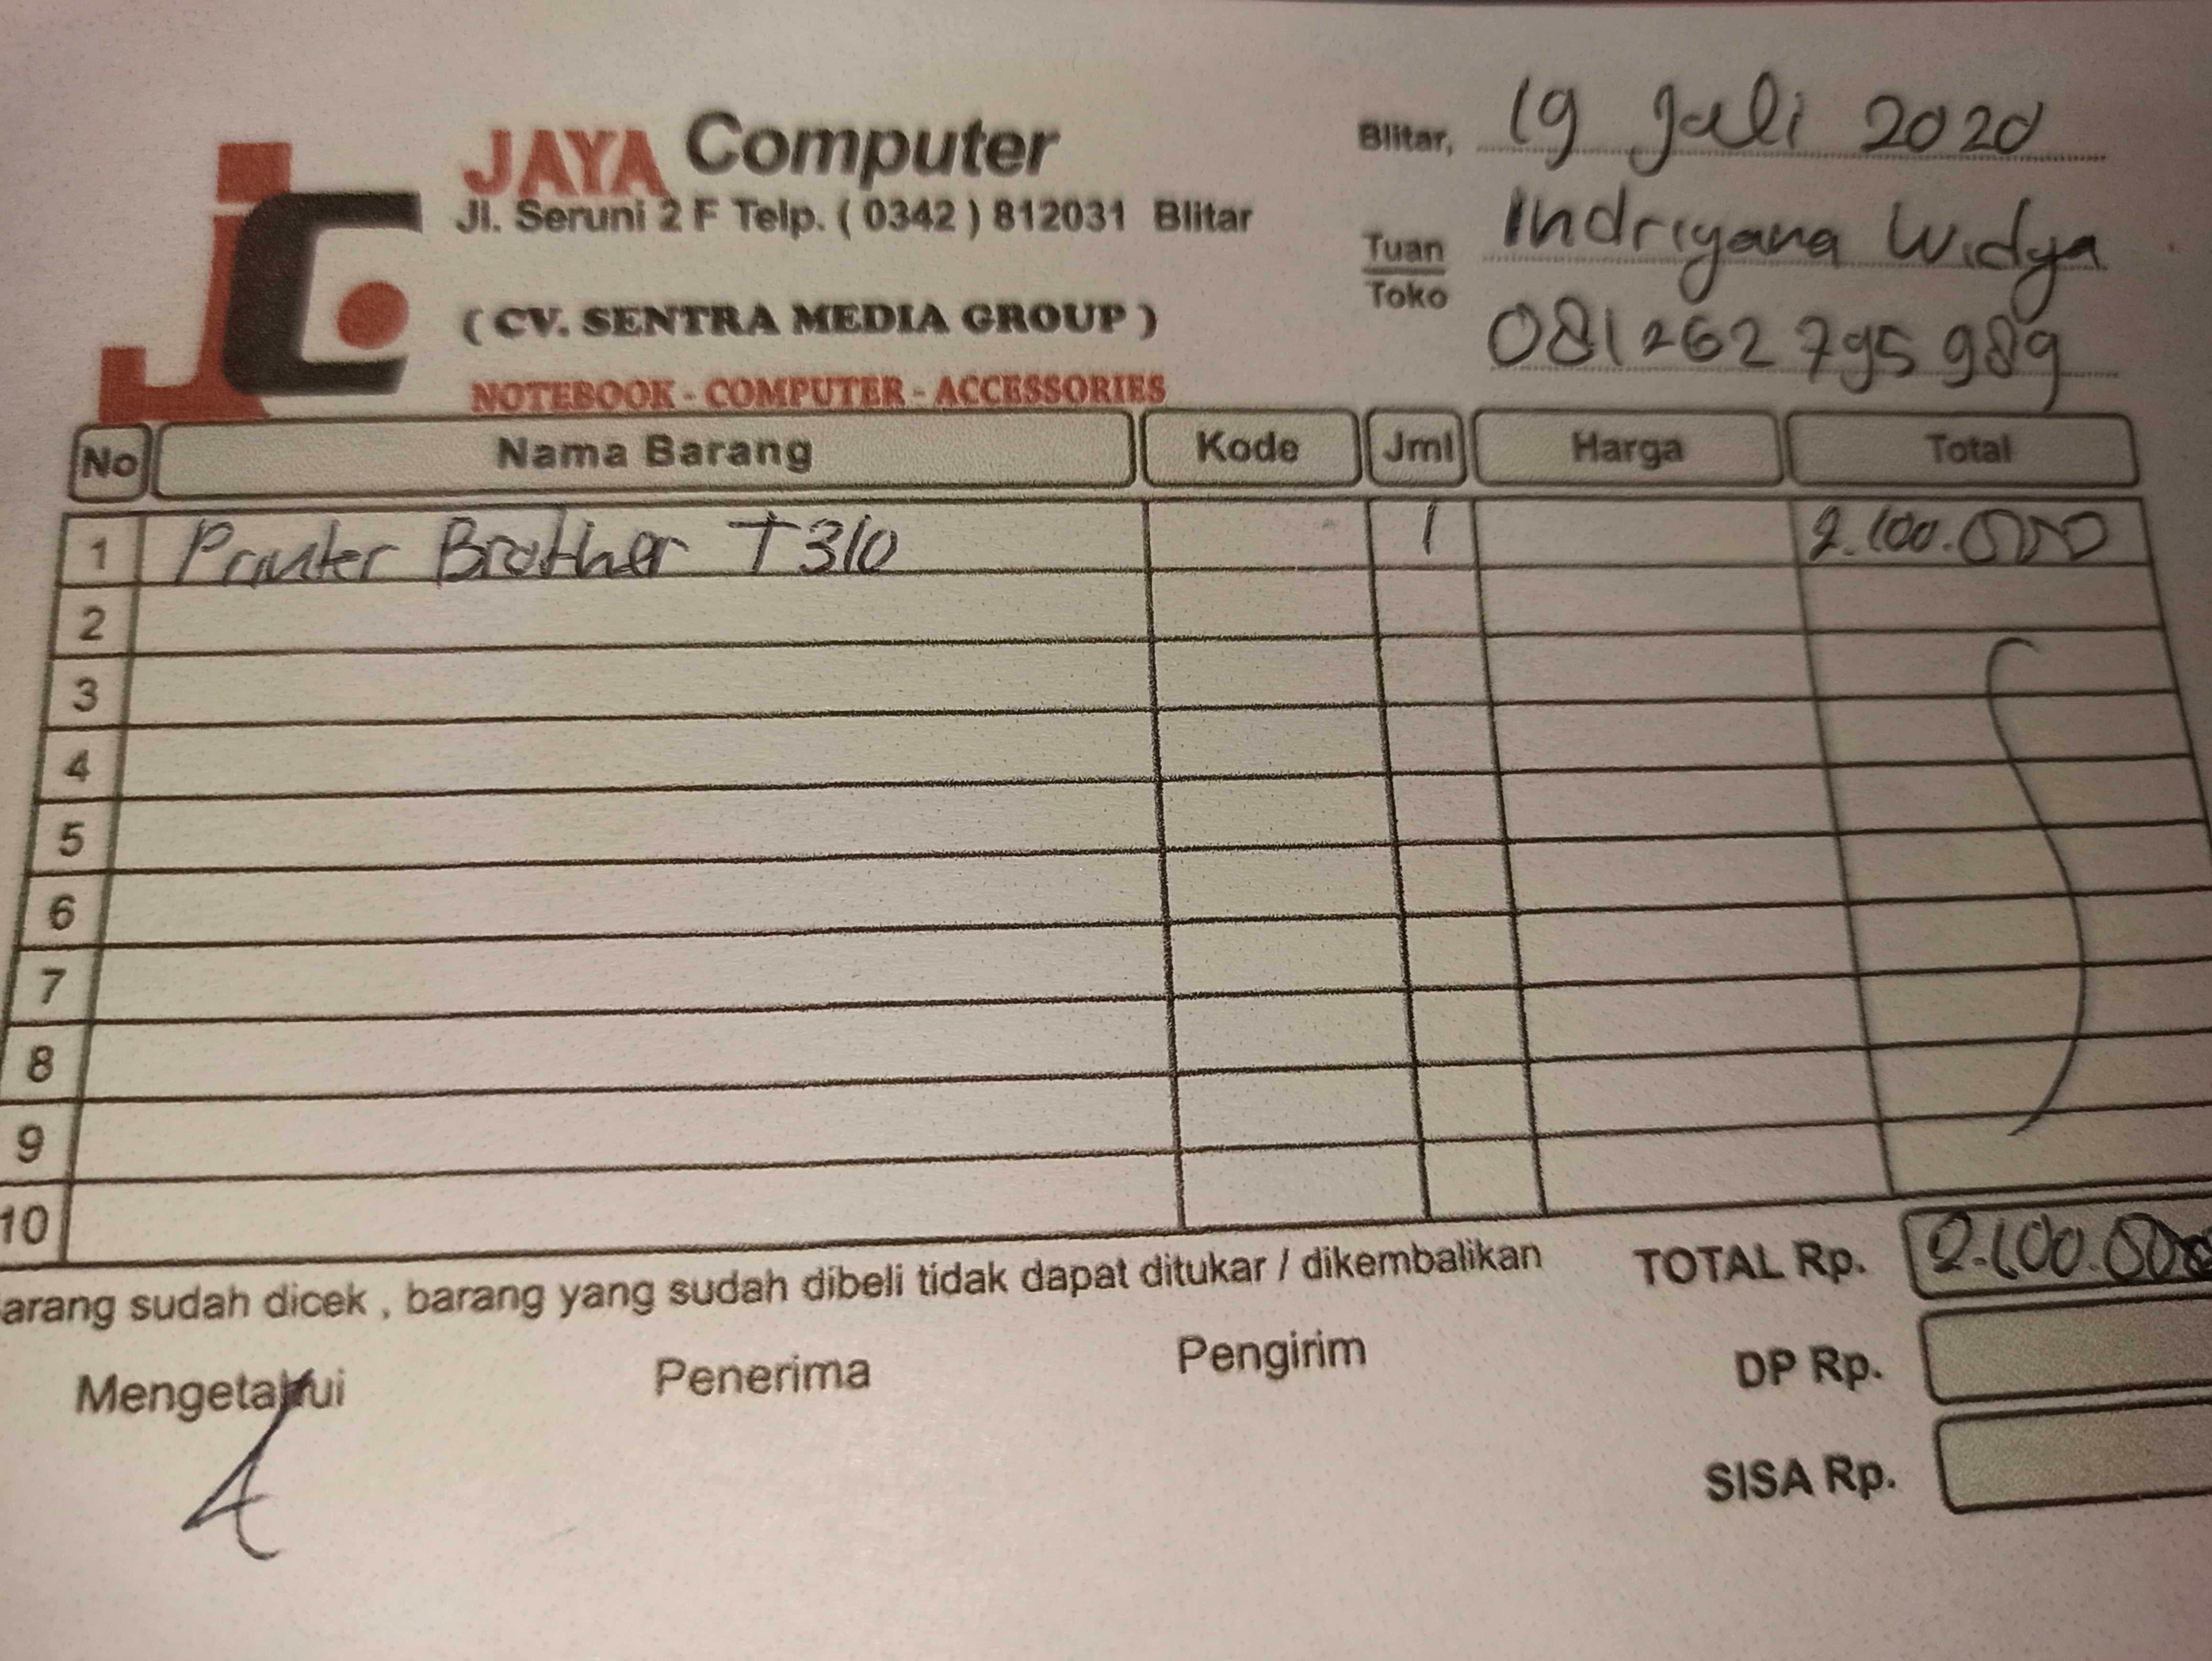 JC
JAYA Computer
Jl. Seruni 2 F Telp. ( 0342 ) 812031 Blitar
( CV. SENTRA MEDIA GROUP )
NOTEBOOK - COMPUTER - ACCESSORIES
Blitar, 19 Juli 2020
Tuan
Toko
Indriyana Widya
081262795989
No Nama Barang Kode Jml Harga Total
1 Printer Brother T310 1 2.100.000
2
3
4
5
6
7
8
9
10
arang sudah dicek , barang yang sudah dibeli tidak dapat ditukar / dikembalikan
TOTAL Rp. 2.100.000
Mengetahui Penerima Pengirim
DP Rp.
SISA Rp.